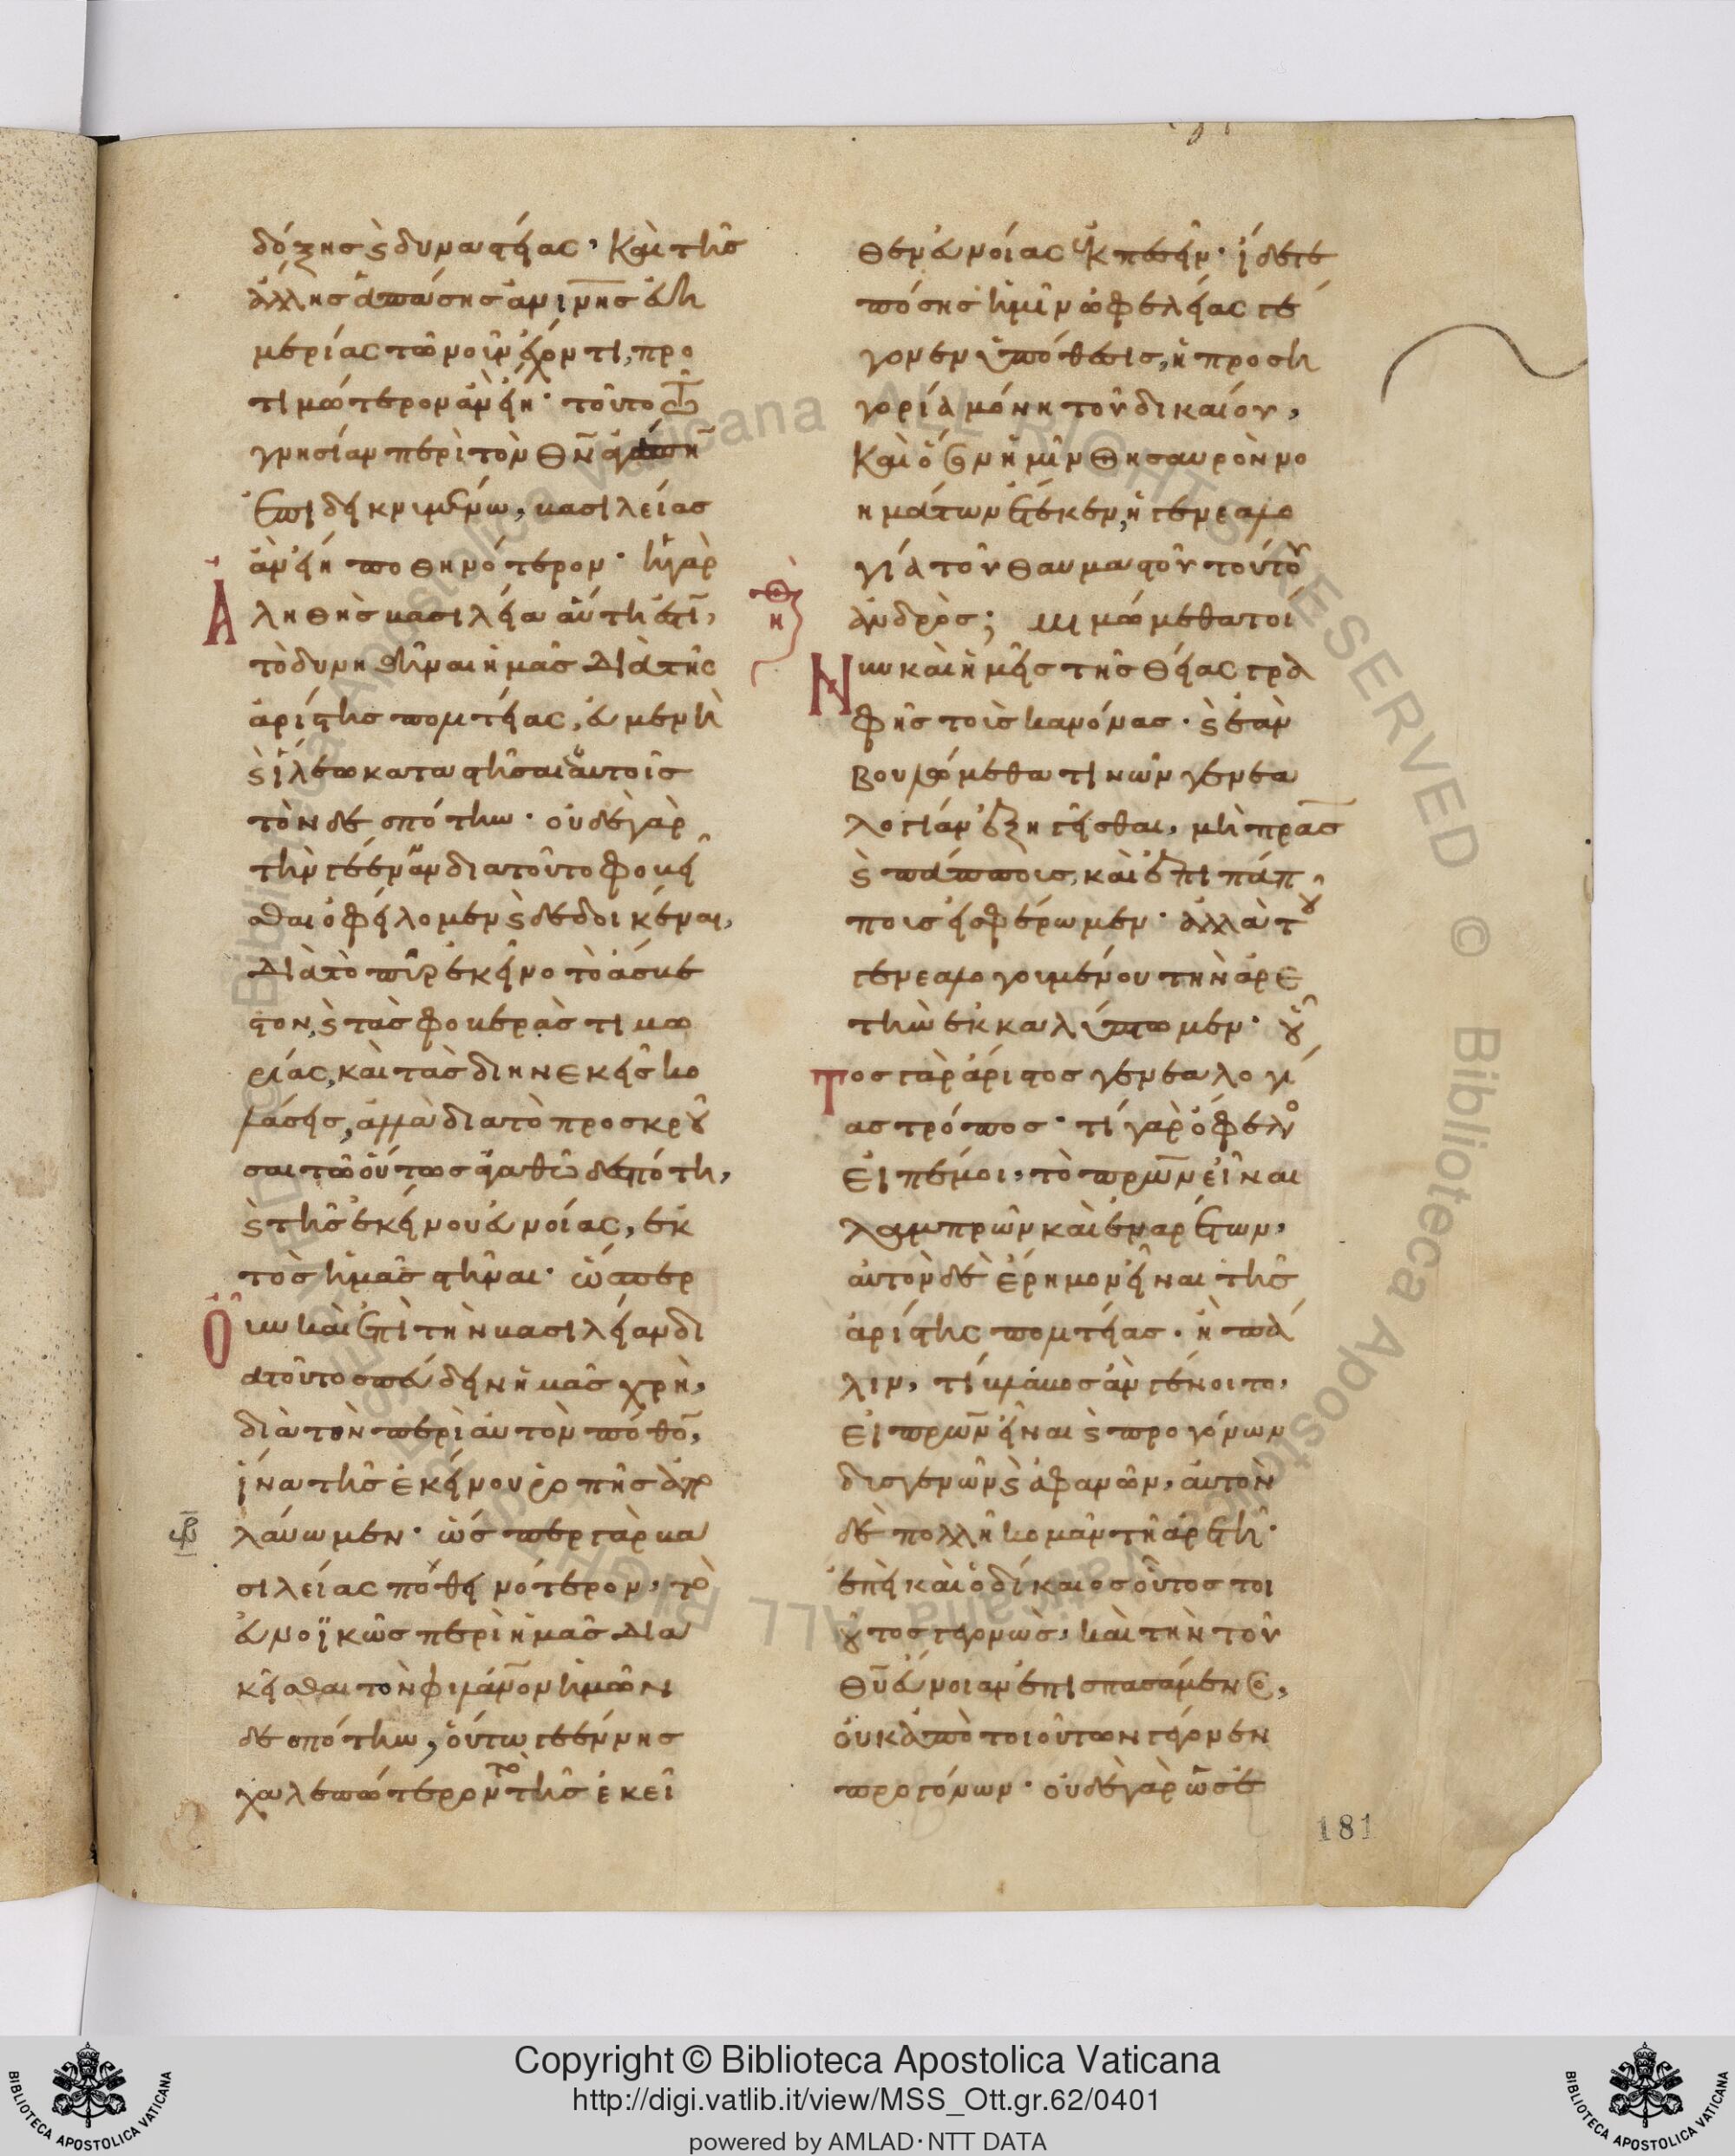 δόξης ϛ δυναστείας· καὶ τῆς
ἄλλης ἁπάσης ἀνίνης εὐη
μερίας τῶ νοῦν ἔχοντι, προ
τιμώτερον ἂν εἴη· τοῦτο
γνησίαν περὶ τὸν θν̄
ἐπιδεικνυμένω, βασιλείας
ἂν εἴη ποθεινότερον· ἡ γὰρ
ἀληθὴς βασιλεία αὕτη ἐστὶ,
τὸ δυνηθῆναι ἡμᾶς διὰ τῆς
ἀρίστης πολιτείας, εὐμενῆ
ϛ ἵλεω καταστῆσαι ἑαυτοῖς
τὸν δεσπότην· οὐδὲ γὰρ
τὴν γέενναν διὰ τοῦτο φοβεῖ
σθαι ὀφείλομεν ϛ δεδοικέναι,
διὰ τὸ πῦρ ἐκεῖνο τὸ ἄσβε
στον, ϛ τὰς φοβερὰς τιμω
ρίας, καὶ τὰς διηνεκεῖς κο
λάσεις, ἀλλὰ διὰ τὸ προσκροῦ
σαι τῶ οὕτως ἀγαθῶ δεσπότη,
ϛ τῆς ἐκείνου εὐνοίας, ἐκ
τὸς ἡμᾶς στῆναι· ὥσπερ
οὖν καὶ ἐπὶ τὴν βασιλείαν δι
ὰ τοῦτο σπεύδειν ἡμᾶς χρὴ,
διὰ τὸν περὶ αὐτὸν πόθον,
ἵνα τῆς ἐκείνου ῥοπῆς ἀπο
λαύωμεν· ὥσπερ γὰρ βα
σιλείας ποθεινότερον, τὸ
εὐνοϊκῶς περὶ ἡμᾶς δια
κεῖσθαι τὸν φιλάνον ἡμῶν
δεσπότην, οὕτω γεέννης
χαλεπώτερον τὸ τῆς ἐκεῖ
θεν εὐνοίας ἐκπεσεῖν· ἴδετε
πόσης ἡμῖν ὠφελείας γέ
γονεν ὑπόθεσις, ἡ προση
γορία μόνη τοῦ δικαίου,
καὶ ὅσον ἡμῖν θησαυρὸν νο
ημάτων ἔτεκεν, ἡ γενεαλο
γία τοῦ θαυμαστοῦ τούτου
ἀνδρὸς; μιμώμεθα τοί
νυν καὶ ἡμεῖς τῆς θείας γρα
φῆς τοὺς κανόνας· ϛ ἐὰν
βουλώμεθα τινῶν γενεα
λογίαν ἐξηγεῖσθαι, μὴ πρας
ϛ πάππους, καὶ ἐπιπάπ
πους εἰσφέρωμεν· ἀλλὰ τοῦ
γενεαλογουμένου τὴν ἀρε
τὴν ἐκκαλύπτωμεν· οὗ
τος γὰρ ἄριστος γενεαλογί
ας τρόπος· τί γὰρ ὄφελος
εἰπέ μοι, τὸ πρων εἶναι
λαμπρῶν καὶ ἐναρέτων,
αὐτὸν δὲ ἔρημον εἶναι τῆς
ἀρίστης πολιτείας· ἢ πά
λιν, τί βλάβος ἂν γένοιτο,
εἰ πρων εἶναι ϛ προγόνων
δυσγενῶν ϛ ἀφανῶν, αὐτὸν
δὲ πολλῆ κομᾶν τῆ ἀρετῆ·
ἐπεὶ καὶ ὁ δίκαιος οὗτος τοι
οῦτος γεγονὼς, καὶ τὴν τοῦ
θῡ εὔνοιαν ἐπισπασάμενος,
οὐκ ἀπὸ τοιούτων γέγονεν
προγόνων· οὐδὲ γὰρ ὡς ἐ
181
Copyright © Biblioteca Apostolica Vaticana
http://digi.vatlib.it/view/MSS_Ott.gr.62/0401
powered by AMLAD·NTT DATA
BIBLIOTECA APOSTOLICA VATICANA
BIBLIOTECA APOSTOLICA VATICANA